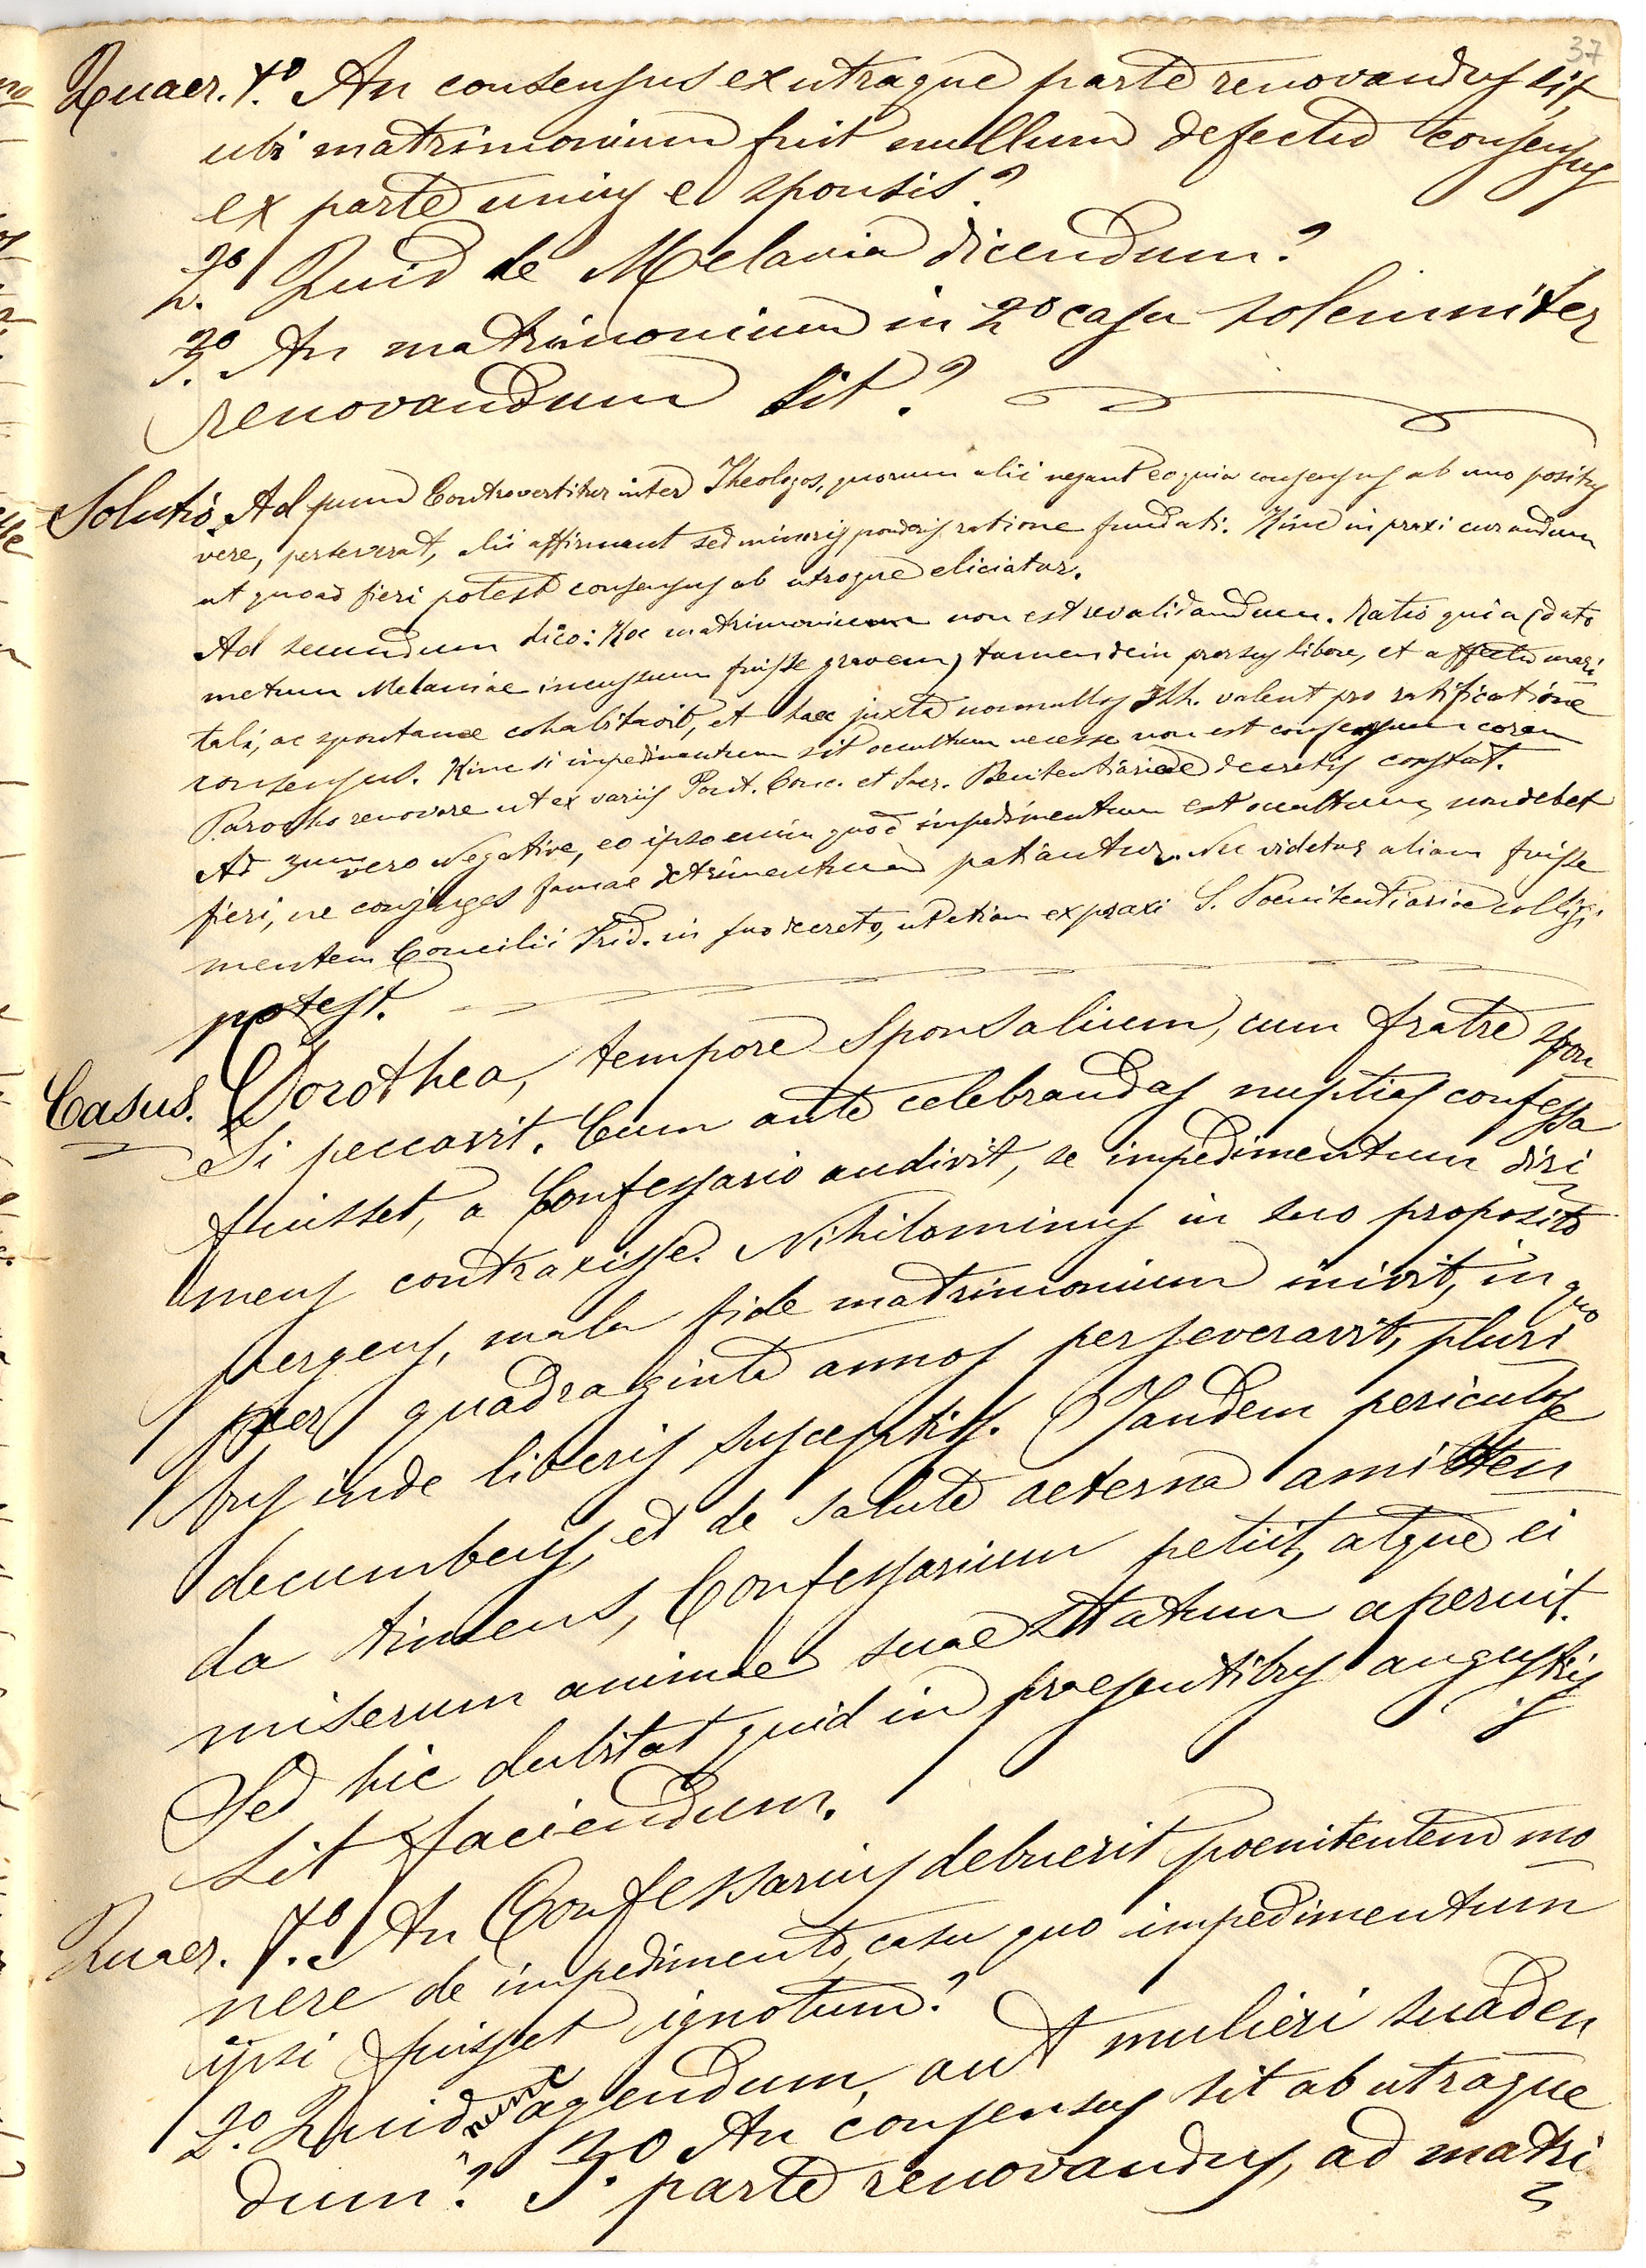 37
Quaer. 1.º An consensus ex utraque parte renovandus sit,
ubi matrimonium fuit nullum defectu consensus
ex parte unius e sponsis?
2.º Quid de Melania dicendum?
3.º An matrimonium in 2º casu solemniter
renovandum sit?
Solutio. Ad pum Controvertitur inter Theologos, quorum alii negant eo quia consensus ab uno positus
vere, perseverat, alii affirmant sed minoris ponderis ratione fundati. Hinc in praxi curandum
ut quoad fieri potest consensus ab utroque eliciatur.
Ad secundum dico: Hoc matrimonium non est revalidandum. Ratio quia (dato
metum Melaniae incussum fuisse gravem) tamen dein prorsus libere, et affectu mari
tali, ac spontanee cohabitavit, et haec juxta nonnullos Thh. valent pro ratificatione
consensus. Hinc si impedimentum sit occultum necesse non est consensum coram
Parocho renovare ut ex variis Pont. Conc. et Sac. Penitentiariae decretis constat.
Ad 3um vero Negative, eo ipso enim quod impedimentum est occultum, non debet
fieri, ne conjuges famae detrimentum patiantur. Nec videtur aliam fuisse
mentem Concilii Trid. in suo decreto, ut etiam ex praxi S. Poenitentiariae colligi
potest.
Casus. Dorothea, tempore Sponsalium, cum fratre spon
si peccavit. Cum ante celebrandas nuptias confessa
fuisset, a Confessario audivit, se impedimentum diri
mens contraxisse. Nihilominus in suo proposito
pergens, mala fide matrimonium inivit, in quo
per quadraginta annos perseveravit, pluri
bus inde liberis susceptis. Tandem periculose
decumbens, et de salute aeterna amitten
da timens, Confessarium petiit, atque ei
miserum animae suae statum aperuit.
Sed hic dubitat quid in praesentibus angustiis
sit faciendum.
Quaer. 1.º An Confessarius debuerit poenitentem mo
nere de impedimento, casu quo impedimentum
ipsi fuisset ignotum?
2.º Quid nunc agendum, aut mulieri suaden
dum? 3.º An consensus sit ab utraque
parte renovandus, ad matri